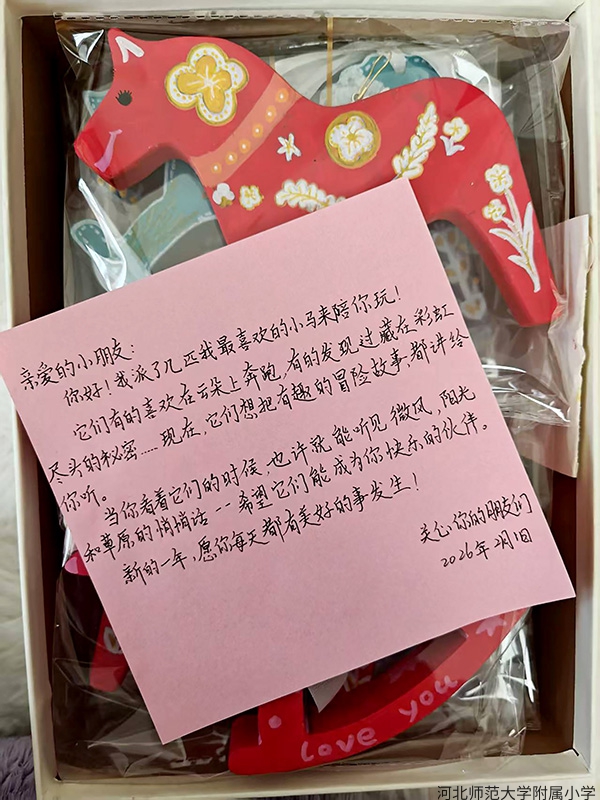 亲爱的小朋友:
你好!我派了几匹我最喜欢的小马来陪你玩!
它们有的喜欢在云朵上奔跑,有的发现过藏在彩虹
尽头的秘密……现在,它们想把有趣的冒险故事,都讲给
你听。
当你看着它们的时候,也许就能听见微风,阳光
和草原的悄悄话--希望它们能成为你快乐的伙伴。
新的一年,愿你每天都有美好的事发生!
关心你的朋友们
2026年2月1日
love you
河北师范大学附属小学